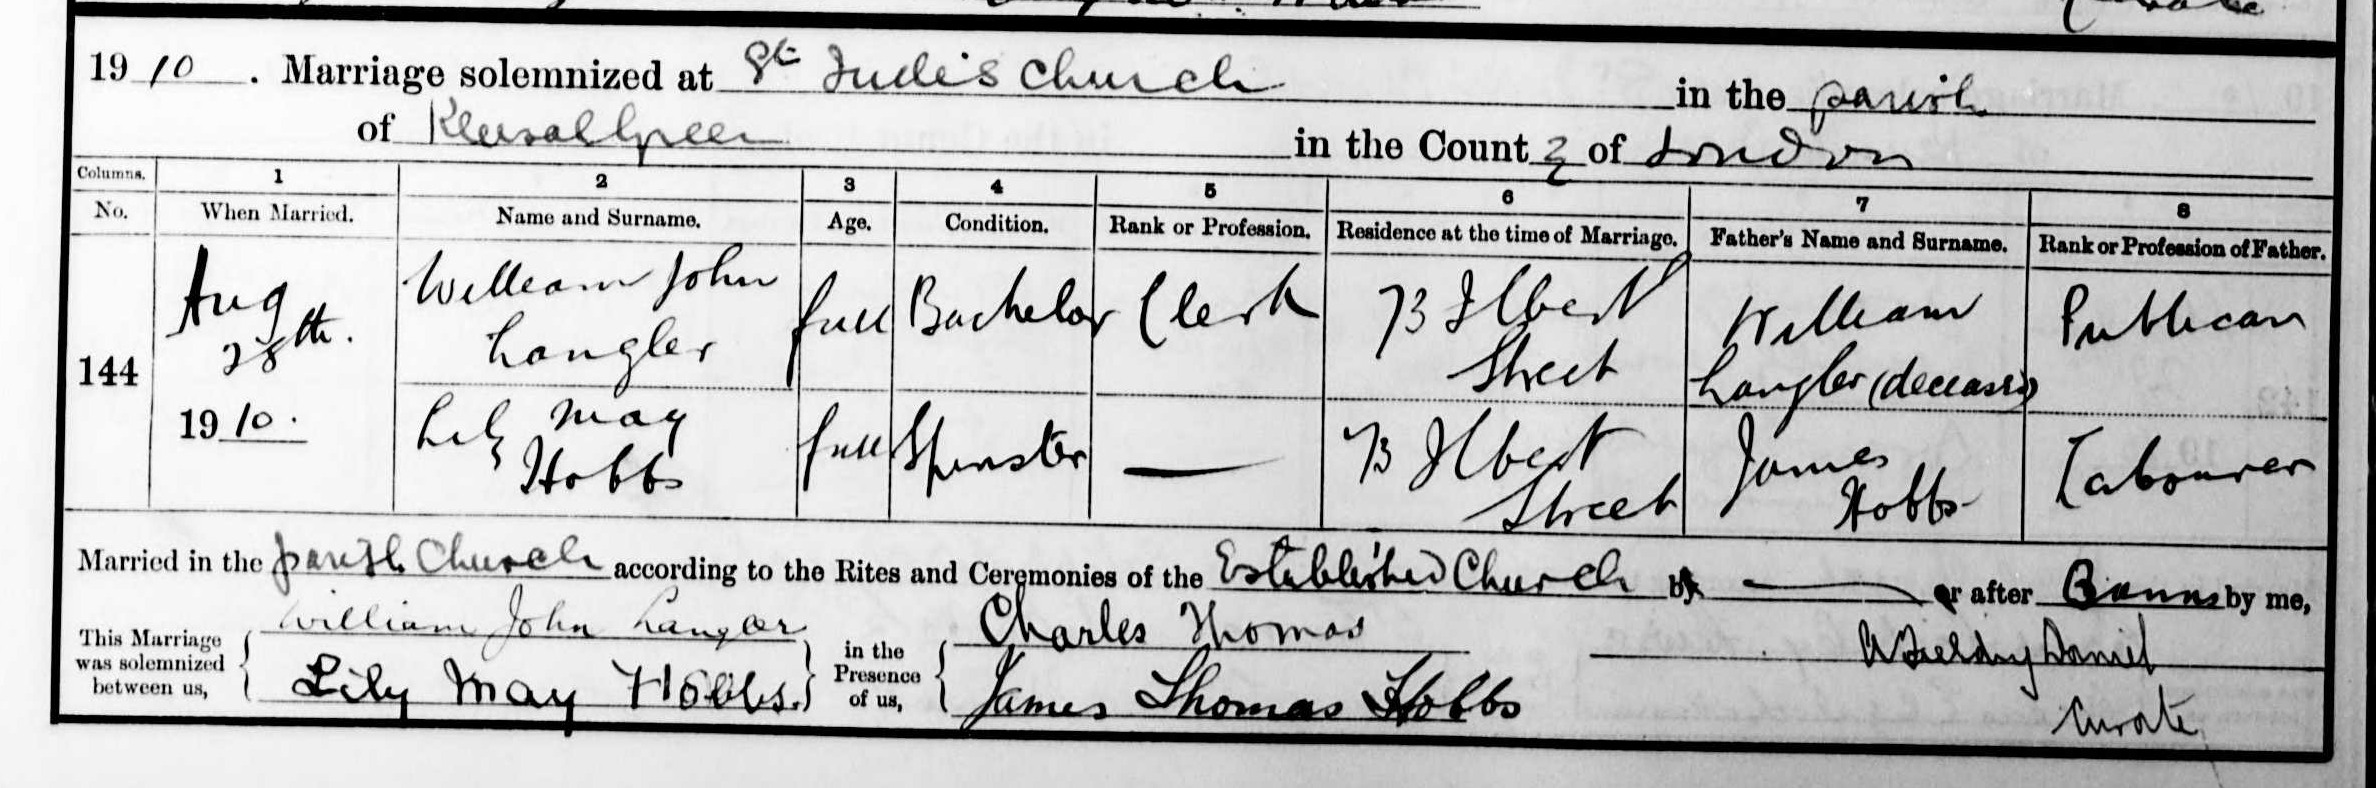 1910. Marriage solemnized at St Jude's Church in the parish
of Kensal Green in the County of London
Columns. 1 2 3 4 5 6 7 8
No. When Married. Name and Surname. Age. Condition. Rank or Profession. Residence at the time of Marriage. Father's Name and Surname. Rank or Profession of Father.
144
Aug
28th.
1910.
William John
Langler
full
Bachelor
Clerk
73 Ilbert
Street
William
Langler (deceased)
Publican
Lily May
Hobbs
full
Spinster
—
73 Ilbert
Street
James
Hobbs
Labourer
Married in the parish Church according to the Rites and Ceremonies of the Established Church by — or after Banns by me,
This Marriage
was solemnized
between us,
William John Langler
Lily May Hobbs.
in the
Presence
of us,
Charles Thomas
James Thomas Hobbs
Daniel
Curate